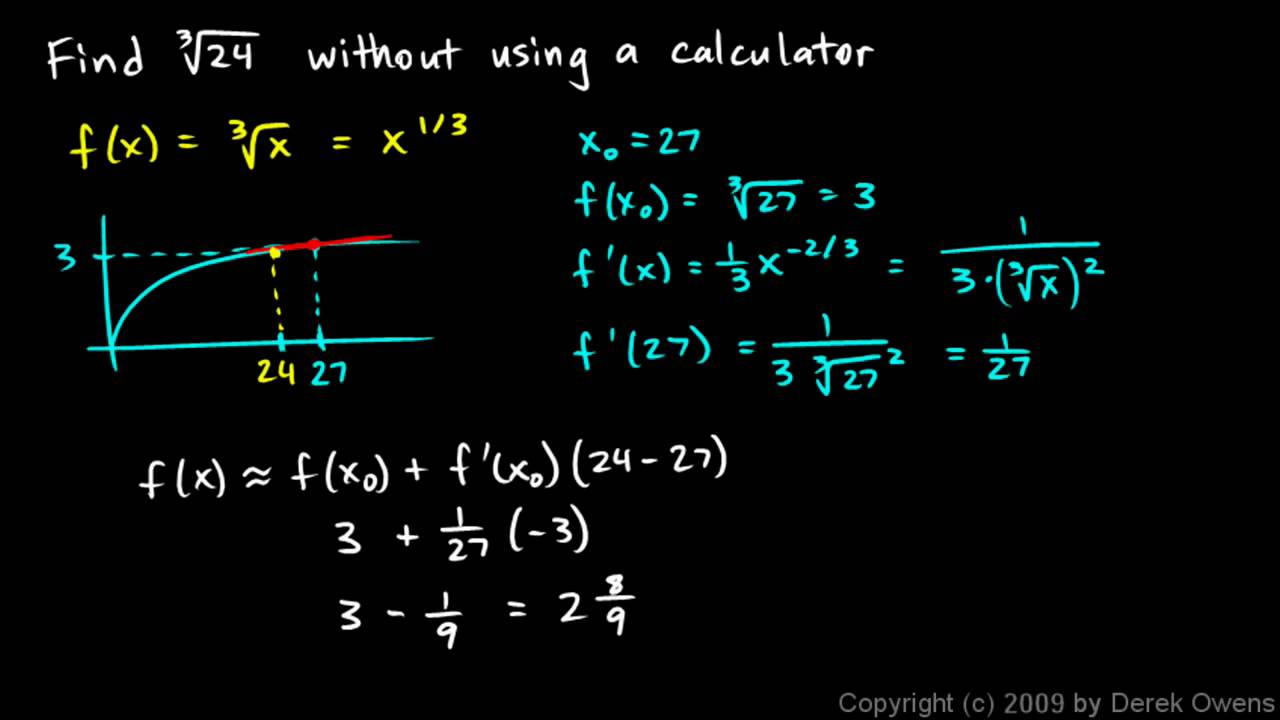 Find ∛24 without using a calculator
f(x) = ∛x = x^1/3
x₀ = 27
f(x₀) = ∛27 = 3
f'(x) = 1/3 x^-2/3 = 1/(3·(∛x)²)
f'(27) = 1/(3 ∛27²) = 1/27
3
24 27
f(x) ≈ f(x₀) + f'(x₀)(24 - 27)
3 + 1/27 (-3)
3 - 1/9 = 2 8/9
Copyright (c) 2009 by Derek Owens